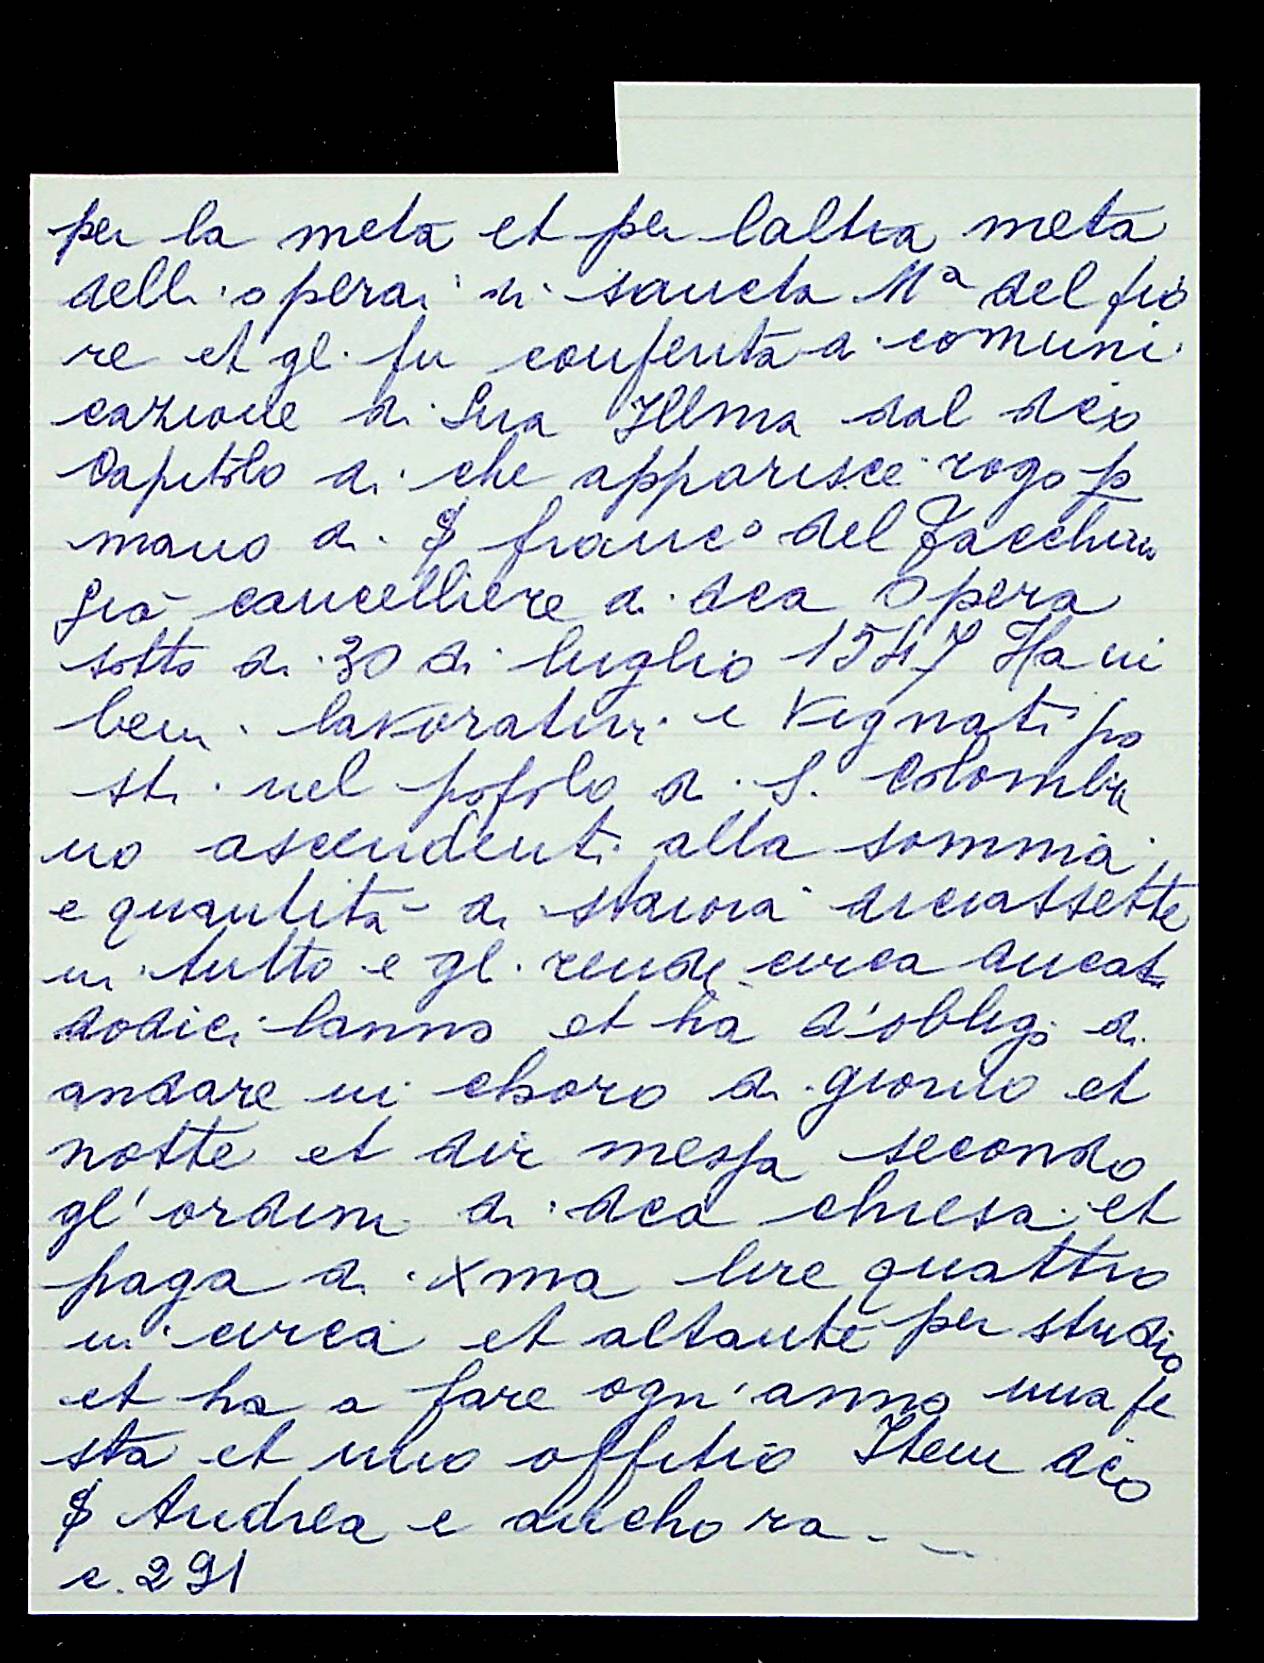 per la metà et per laltra metà
delli operai di sancta Mª del fio
re et gli fu conferita a comuni
cazione di Sua Illma dal dco
Capitolo di che apparisce rogo p
mano di S franc° del
già cancelliere di dca Opera
sotto di 30 di luglio 1547 Ha in
beni lavorativi e vignati po
sti nel popolo di S. Colomba
no ascendenti alla somma
e quantità di staiora diciassette
in tutto e gli rende circa ducati
dodici lanno et ha d'obligo di
andare in choro di giorno et
notte et dir messa secondo
gl'ordini di dca chiesa et
paga di Xma lire quattro
in circa et altante per studio
et ha a fare ogn'anno una fe
sta et uno offitio Item dco
S Andrea e anchora - _
c. 291